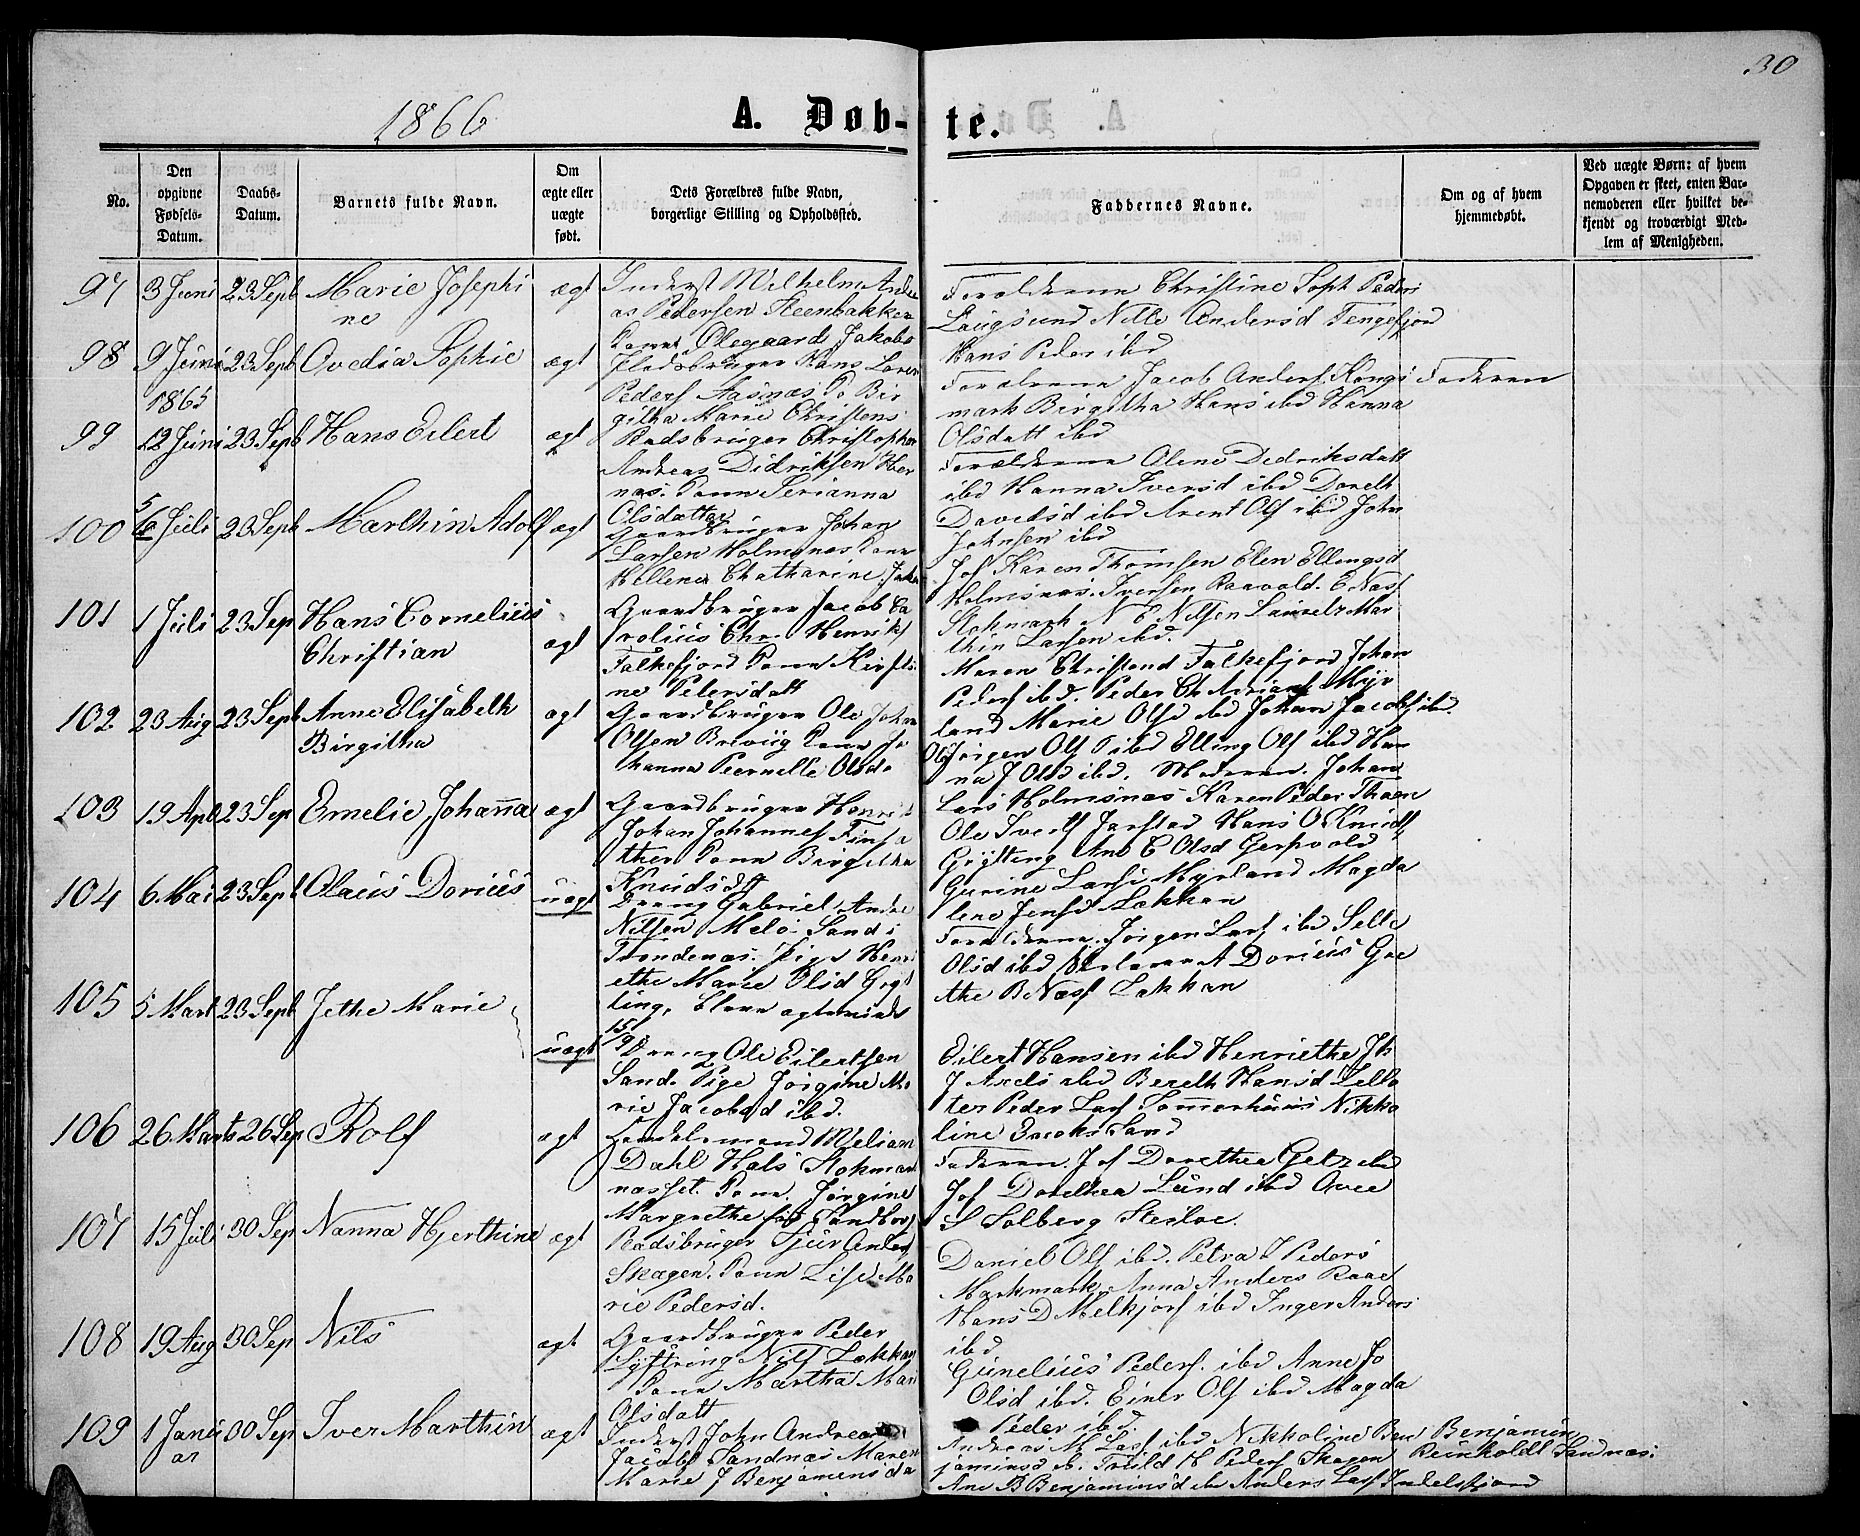 30
1866
A. Døb-te.
No.
Den opgivne Fødsels-Datum.
Daabs-Datum.
Barnets fulde Navn.
Om ægte eller uægte født.
Dets Forældres fulde Navn, borgerlige Stilling og Opholdssted.
Faddernes Navne.
Om og af hvem hjemmedøbt.
Ved uægte Børn: af hvem Opgaven er skeet, enten Barnemoderen eller hvilket bekjendt og troværdigt Medlem af Menigheden.
97 3 Juni 23 Sept Marie Josephi
ne
ægt
Inderst Wilhelm Andre
as Pedersen Steenbakken
Kone Olegaard Jakobs
Forældrene Christine Soph Peders
Laugsund Nille Andersd Tengefjord
Hans Peder ibd
98 9 Juni 1865 23 Sept Ovedia Sophie
ægt
Pladsbruger Hans Loren
Peders Aasnæs Ko Bir
githa Marie Christens
Forældrene Jacob Anders Kongs
mark Birgitha Hans ibd Hanna
Olsdatt ibd
Faderen
99 12 Juni 23 Sept Hans Eilert
ægt
Pladsbruger Christopher
Andreas Didriksen Her
næs. Kone Serianna
Olsdatter
Forældrene Olene Dedriksdatt
ibd Hanna Iversd ibd Doreth
Davidsd ibd Arent Ols ibd John
Johnsen ibd
100 5/6 Juli 23 Sept Marthin Adolf
ægt
Gaardbruger Johan
Larsen Holmsnæs Kone
Hellene Chatharine Joh
Jof Karen Thomsen Elen Ellingsd
Holmsnæs. Iversen Raavold. E Næss
Stokmark N E Nilsen Lauretz Mar
thin Larsen ibd.
101 1 Juli 23 Sep Hans Cornelius
Christian
ægt
Gaardbruger Jacob Ca
rolius Chr. Henrik
Falkefjord Kone Kirsti
ne Petersdatt
Maren Christend Falkefjord Johan
Peders ibd. Peder Ch Adrians Myr
land Marie Olsd ibd Johan Jacobs ibd.
102 23 Aug 23 Sept Anne Elisabeth
Birgitha
ægt
Gaardbruger Ole Johan
Olsen Breviig Kone Jo
hanna Pernelle Olsd.
Jørgen Ols ibd Elling Ols ibd Han
na J Olsd ibd. Moderen. Johan
Lars Holmsnæs Karen Peder Thoen
103 19 Apl 23 Sep Emelie Johanna
ægt
Gaardbruger Henrik
Johan Johannes Finsæ
ther Kone Birgitha
Knudsd
Ole Ivers Jarstad Hans O Knuds
Grytting Ane C Olsd Gerpvold
Gurine Lars Myrland Magda
lene Jensd Løkkan
104 6 Mai 23 Sept Olaus Dorius
uægt
Dreng Gabriel Andre
Nilsen Melø Sand i
Trondenæs. Pige Henri
ethe Marie Olsd Gryt
ting,
Forældrene. Jørgen Lars ibd Sille
Olsd ibd A Dorius Gre
the B Næss Løkkan
105 5 Mart 23 Sept Jethe Marie
uægt
Dreng Ole Eilertsen
Sand. Pige Jørgine Ma
rie Jacobsd ibd.
Eilert Hansen ibd Henriethe Jh
J Axels ibd Bereth Hansd
Peder Lars Sommerhuus Nikko
line Jacobs Sand
106 26 Marts 26 Sep Rolf
ægt
Handelsmand Wiliam
Dahl Hals Stokmark
næsset. Kone. Jørgine
Margrethe født Sandborg
Faderen. Jof Dorethea Getz ibd
Jof Dorethea Lund ibd Ovee
S Solberg Steiloe.
107 15 Juli 30 Sep Nanna Hjerthine
ægt
Pladsbruger Sjur Anders
Skagen. Kone Lise Ma
rie Pedersd.
Daniel Ols ibd. Petra J Peders
Markmark. Anna Anders Raae
Hans D Melkjors ibd Inger Anders
ibd
108 19 Aug 30 Sep Nils
ægt
Gaardbruger Peder
Lyftring Nils Løkkan
Kone Martha Mari
Olsdatt
Gunelius Peders. ibd Anne Jo
Olsd ibd. Einer Ols ibd Magda
Peder ibd.
109 1 Janu
ar
30 Sep Iver Marthin
ægt
Inderst John Andreas
Jacobs Sandnæs Maren
Marie J Benjaminsda
Andreas M Lars ibd Nikkoline Ben
jaminsd ib. Troild K Peders Skagen
Ane B Benjaminsd ibd Anders Lars Indlefjord
Benjamin
Reinholdt Sandnæs.